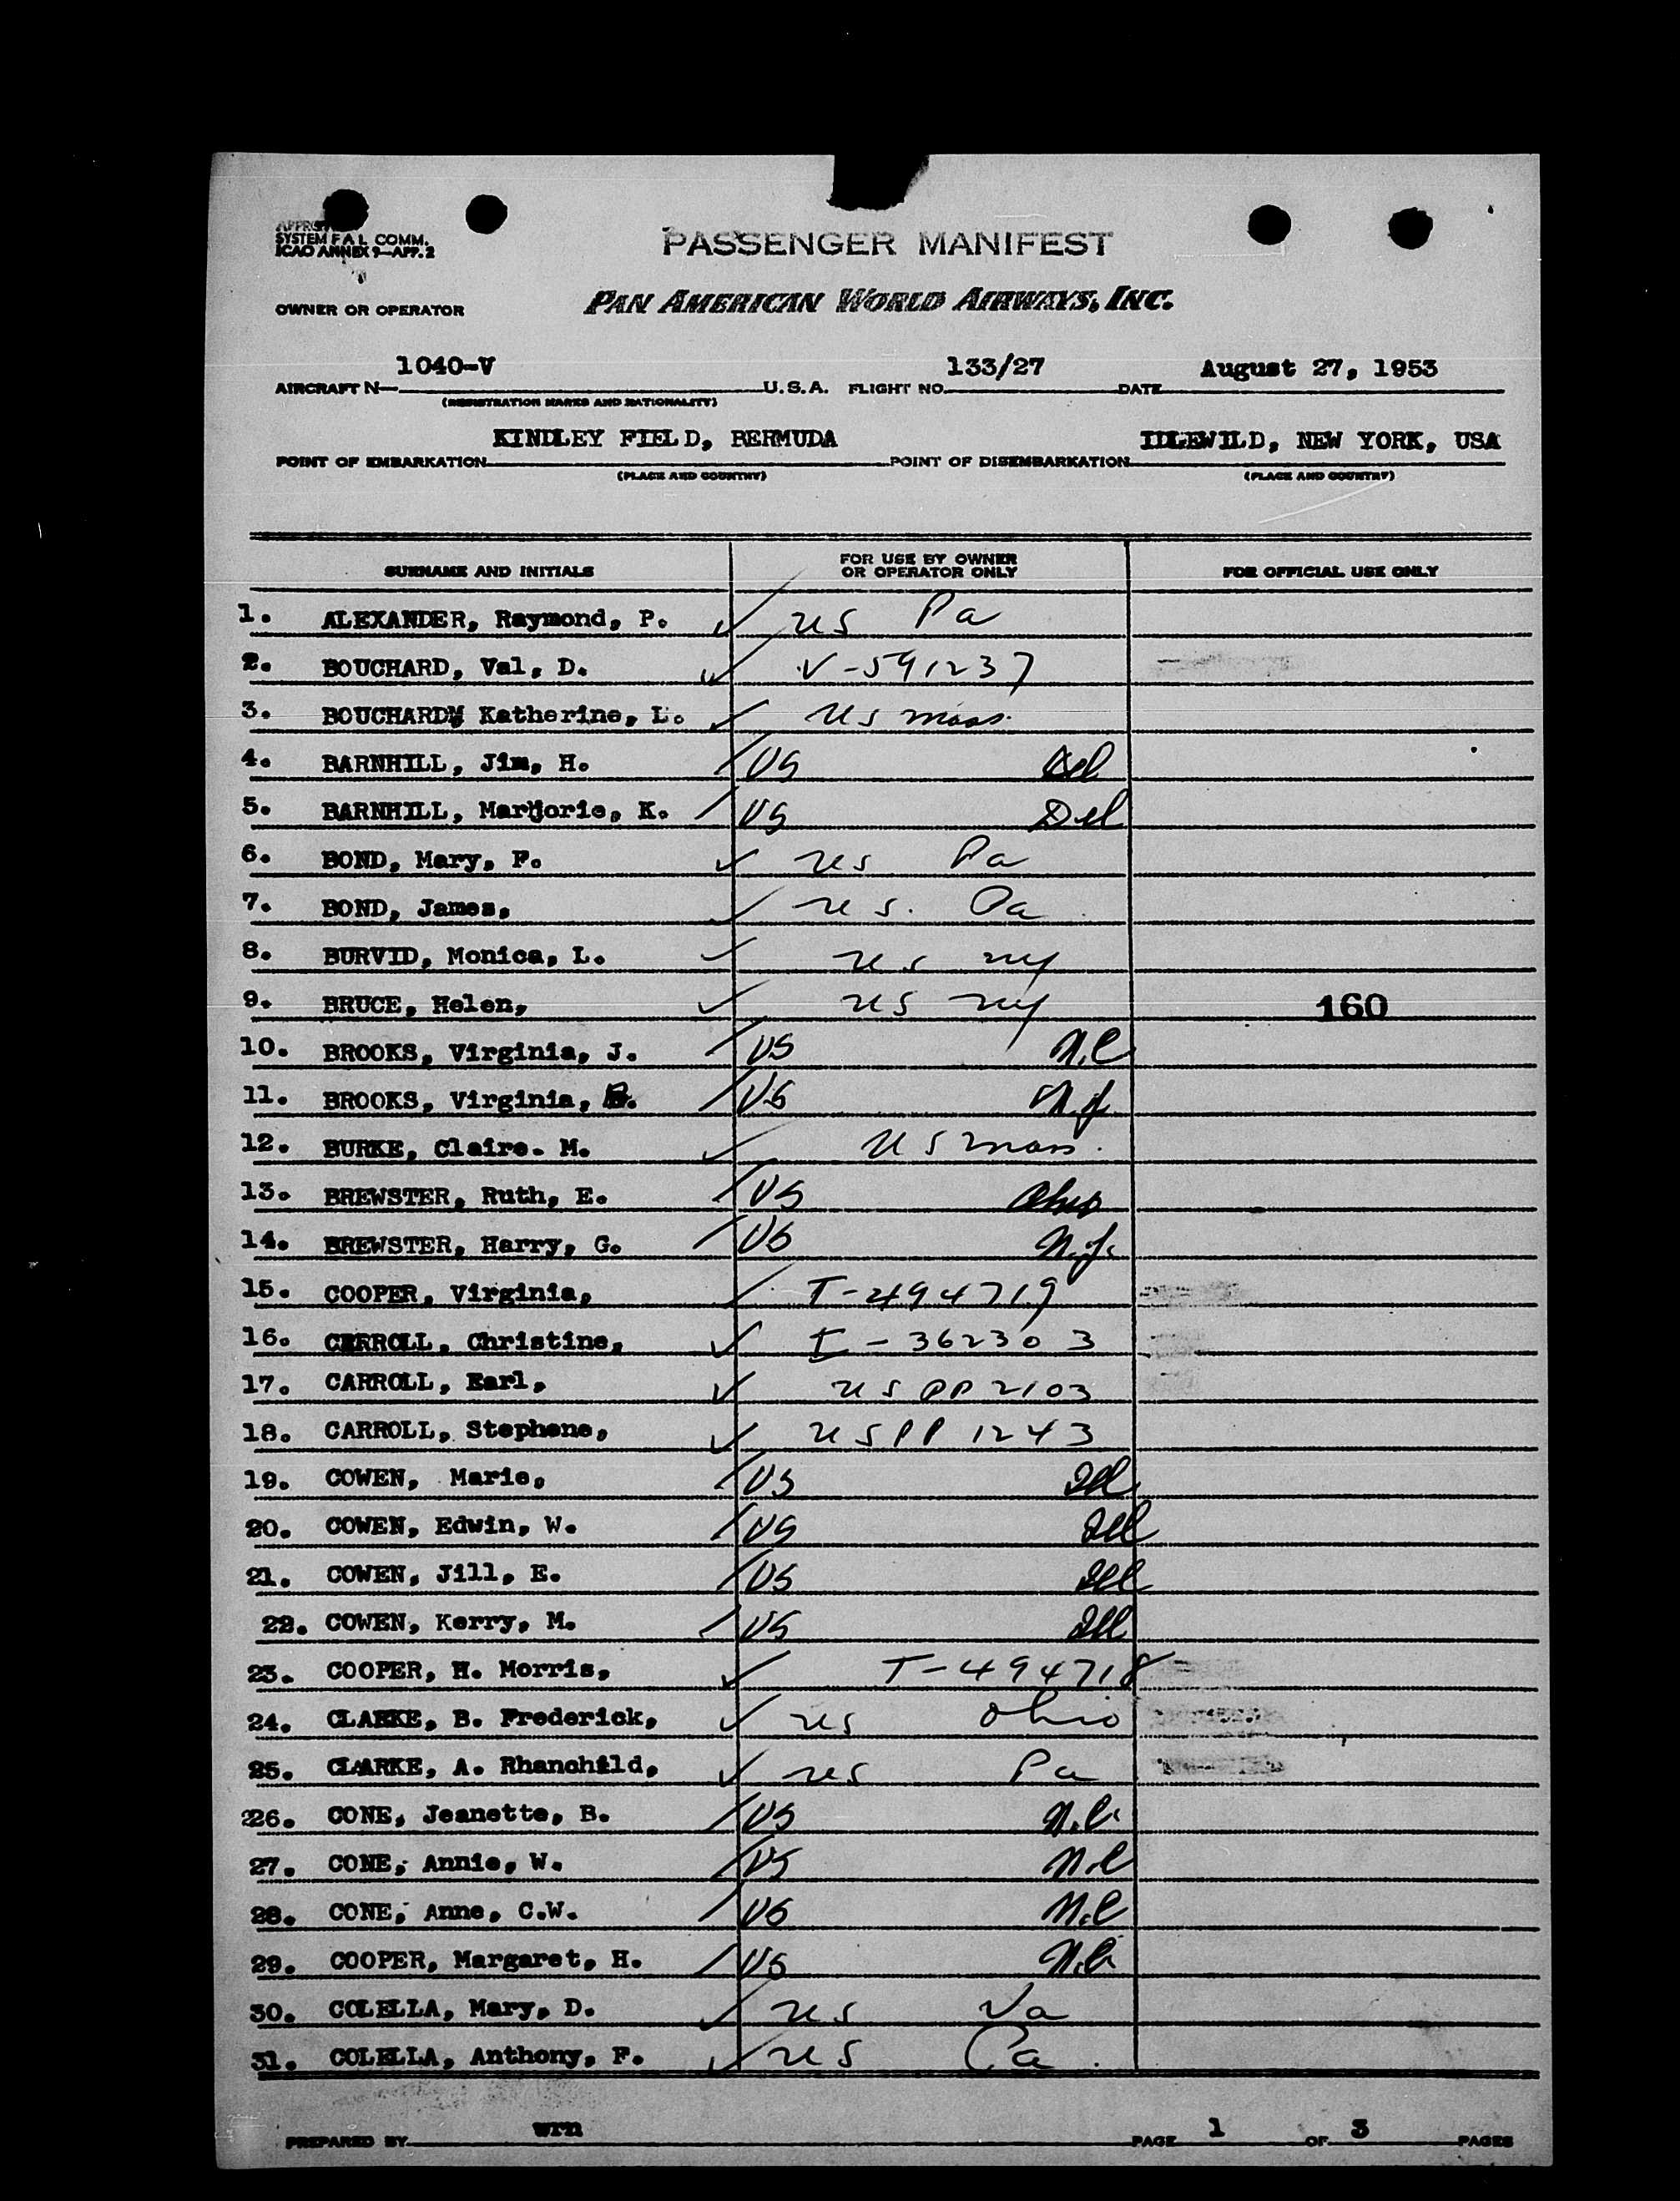 SYSTEM F A L COMM.
ICAO ANNEX 9—APP. 2
PASSENGER MANIFEST
OWNER OR OPERATOR PAN AMERICAN WORLD AIRWAYS, INC.
AIRCRAFT N— 1040-V U.S.A. FLIGHT NO. 133/27 DATE August 27, 1953
(REGISTRATION MARKS AND NATIONALITY)
POINT OF EMBARKATION KINDLEY FIELD, BERMUDA POINT OF DISEMBARKATION IDLEWILD, NEW YORK, USA
(PLACE AND COUNTRY) (PLACE AND COUNTRY)
SURNAME AND INITIALS FOR USE BY OWNER OR OPERATOR ONLY FOR OFFICIAL USE ONLY
1. ALEXANDER, Raymond, P. ✓ US Pa
2. BOUCHARD, Val, D. ✓ V-591237
3. BOUCHARD, Katherine, L. ✓ US Mass.
4. BARNHILL, Jim, H. / US Del
5. BARNHILL, Marjorie, K. / US Del
6. BOND, Mary, F. ✓ US Pa
7. BOND, James, ✓ US. Pa
8. BURVID, Monica, L. ✓ US NY
9. BRUCE, Helen, ✓ US NY 160
10. BROOKS, Virginia, J. / US N.C
11. BROOKS, Virginia, / US N.J.
12. BURKE, Claire. M. ✓ US Mass.
13. BREWSTER, Ruth, E. / US Ohio
14. BREWSTER, Harry, G. / US N.J.
15. COOPER, Virginia, ✓ T-494719
16. CERROLL, Christine, ✓ I-362303
17. CARROLL, Earl, ✓ US PP 2103
18. CARROLL, Stephene, ✓ US PP 1243
19. COWEN, Marie, / US Ill
20. COWEN, Edwin, W. / US Ill
21. COWEN, Jill, E. / US Ill
22. COWEN, Kerry, M. / US Ill
23. COOPER, H. Morris, ✓ T-494718
24. CLARKE, B. Frederick, ✓ US Ohio
25. CLARKE, A. Rhanchild, ✓ US Pa
226. CONE, Jeanette, B. / US N.C.
27. CONE, Annie, W. / US N.C
28. CONE, Anne, C.W. / US N.C
29. COOPER, Margaret, H. / US N.C.
30. COLELLA, Mary, D. ✓ US Va
31. COLELLA, Anthony, F. ✓ US Pa.
PREPARED BY wrn PAGE 1 OF 3 PAGES